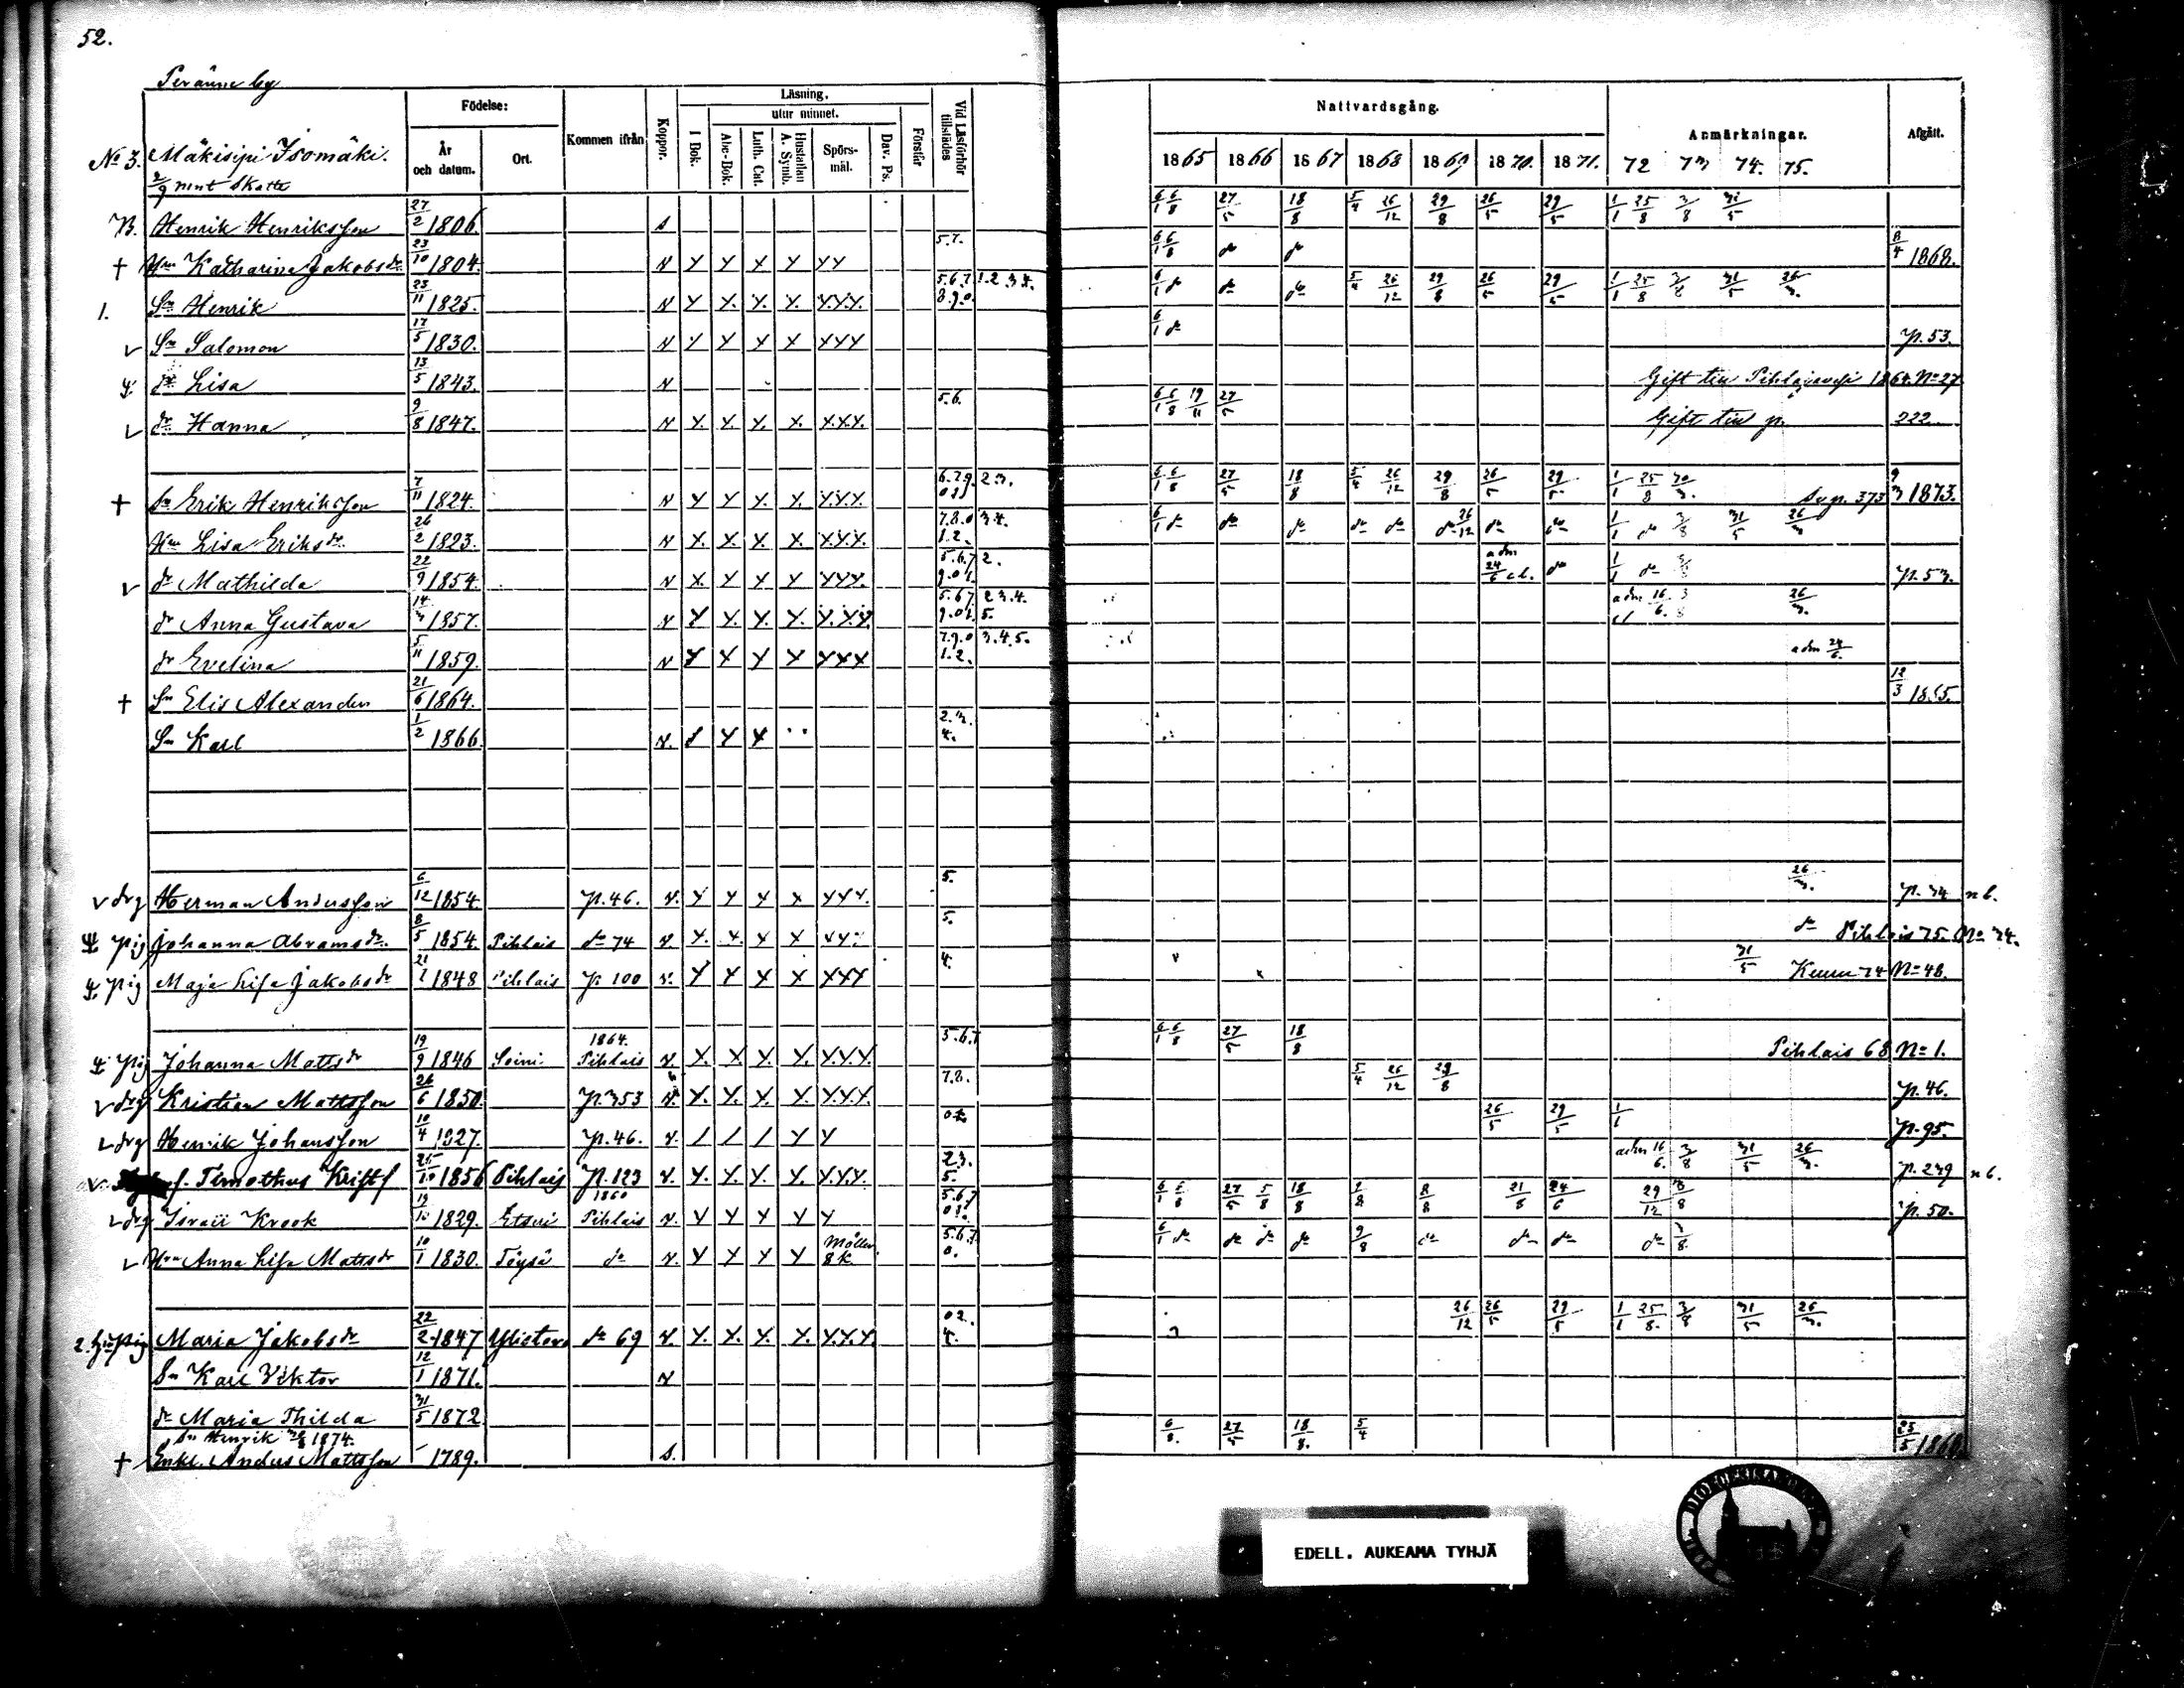 52.
Peränne by
Födelse: Kommen ifrån Koppor. Läsning. Vid Läsförhör tillstädes Nattvardsgång. Anmärkningar. Afgått.
År och datum. Ort. I Bok. utur minnet. Förstår
Abc-Bok. Luth. Cat. Hustaflan A. Symb. Spörs-mål. Dav. Ps.
1865 1866 1867 1868 1869 1870. 1871. 72 73 74. 75.
No 3. Mäkisipi Isomäki.
2/9 mnt Skatte
B. Henrik Henriksson 27/2 1806. s 6/1 6/8 27/5 18/8 5/4 26/12 29/8 26/5 29/5 1/1 25/8 3/8 31/5
† Hu Katharina Jakobsdr 23/10 1804. N Y Y X Y YY 5.7. 6/1 6/8 do do 8/4 1868.
1. Sn Henrik 23/11 1825. N Y X. X. X. Y.Y.Y. 5.6.7. 1.2.3.4. 8.9.0. 6/1 do do do 5/4 26/12 29/8 26/5 29/5 1/1 25/8 3/8 31/5 26/3.
v Sn Salomon 17/5 1830. N Y X X X XYY 6/1 do p. 53.
dr Lisa 13/5 1843. N Gift till Pihlajavesi 1864. No 27
v dr Hanna 9/8 1847. N Y. Y. Y. X. X.X.X. 5.6. 6/1 6/8 19/11 27/5 Gift till p. 222.
† Sn Erik Henriksson 7/11 1824. N Y Y X. X. Y.Y.X. 6.7.9. 2 3. 0 1 6/1 6/8 27/5 18/8 5/4 26/12 29/8 26/5 29/5 1/1 25/8 30/3. p. 373 9/3 1873.
Hu Lisa Eriksdr 26/2 1823. N X. X. X. X. X.X.X. 7.8.0 3 4. 1.2. 6/1 do do do do do do 26/12 do do 1/1 do 3/8 31/5 26/3
v dr Mathilda 22/9 1854. N X. Y X Y YYY. 5.6.7 2. 9.0 1. adm 24/6 cl. do 1/1 do 3/8 p. 53.
dr Anna Gustava 14/3 1857. N Y Y. Y. Y. Y.Y.Y. 5.6 7 2 3.4. 9.0 1. 5. adm 16/6. 3/8 26/3.
dr Evelina 5/11 1859. N Y X Y X YXX 7.9.0 3.4.5. 1.2. adm 24/6.
† Sn Elis Alexander 21/6 1864. 12/3 1865.
Sn Karl 1/2 1866. N. Y X 2.3. 4.
v drg Herman Andersson 6/12 1854. p. 46. N. Y Y X X YYY. 5. 26/3. p. 74 n 6.
pig Johanna Abramsdr. 8/5 1854 Pihlais do 74 N. Y. X. X X YY 5. do Pihlais 75. No 74.
pig Maja Lisa Jakobsdr 21/2 1848 Pihlais p. 100 N. Y Y X X XXY 4. 31/5 Keuru 74 No 48.
pig Johanna Mattsdr 19/9 1846 Soini 1864. Pihlais N. X. X X. X. X.X.X. 5.6.7 6/1 6/8 27/5 18/8 Pihlais 68 No 1.
v drg Kristian Mattsson 26/6 1850. p. 353 N. X. Y. X. X. X.X.X. 7.8. 5/4 26/12 29/8 p. 46.
v drg Henrik Johansson 10/4 1827. p. 46. N. / / / Y Y 26/5 29/5 1/1 p. 95.
v f. Timotheus Kristf 25/10 1856 Pihlais p. 123 N. Y. Y. Y. Y. Y.Y.Y. 2 3. 5. adm 16/6. 3/8 31/5 26/3. p. 249 n 6.
v drg Israil Krook 19/10 1829. Etseri 1860 Pihlais N. Y Y Y Y Y 5.6.7 0 1. 6/1 6/8 27/5 5/8 18/8 9/8 8/8 21/6 24/6 29/12 3/8 p. 50.
v Hu Anna Lisa Mattsdr 10/1 1830. Töysä do N. Y Y Y Y 8 K 5.6.7. 0. 6/1 do do do do 9/8 do do do do 3/8.
2. pig Maria Jakobsdr 22/2 1847 Ylistaro do 69 N. Y. X. X. X. Y.X.X. 0 2. 4. 26/12 26/5 29/5 1/1 25/8. 3/8 31/5 26/3.
Sn Karl Viktor 12/1 1871. N
dr Maria Thilda 31/5 1872
Sn Henrik 1874.
† Enkl. Anders Mattsson 1789. s. 6/8. 27/5 18/8. 5/4 25/5 1868.
EDELL. AUKEAMA TYHJÄ